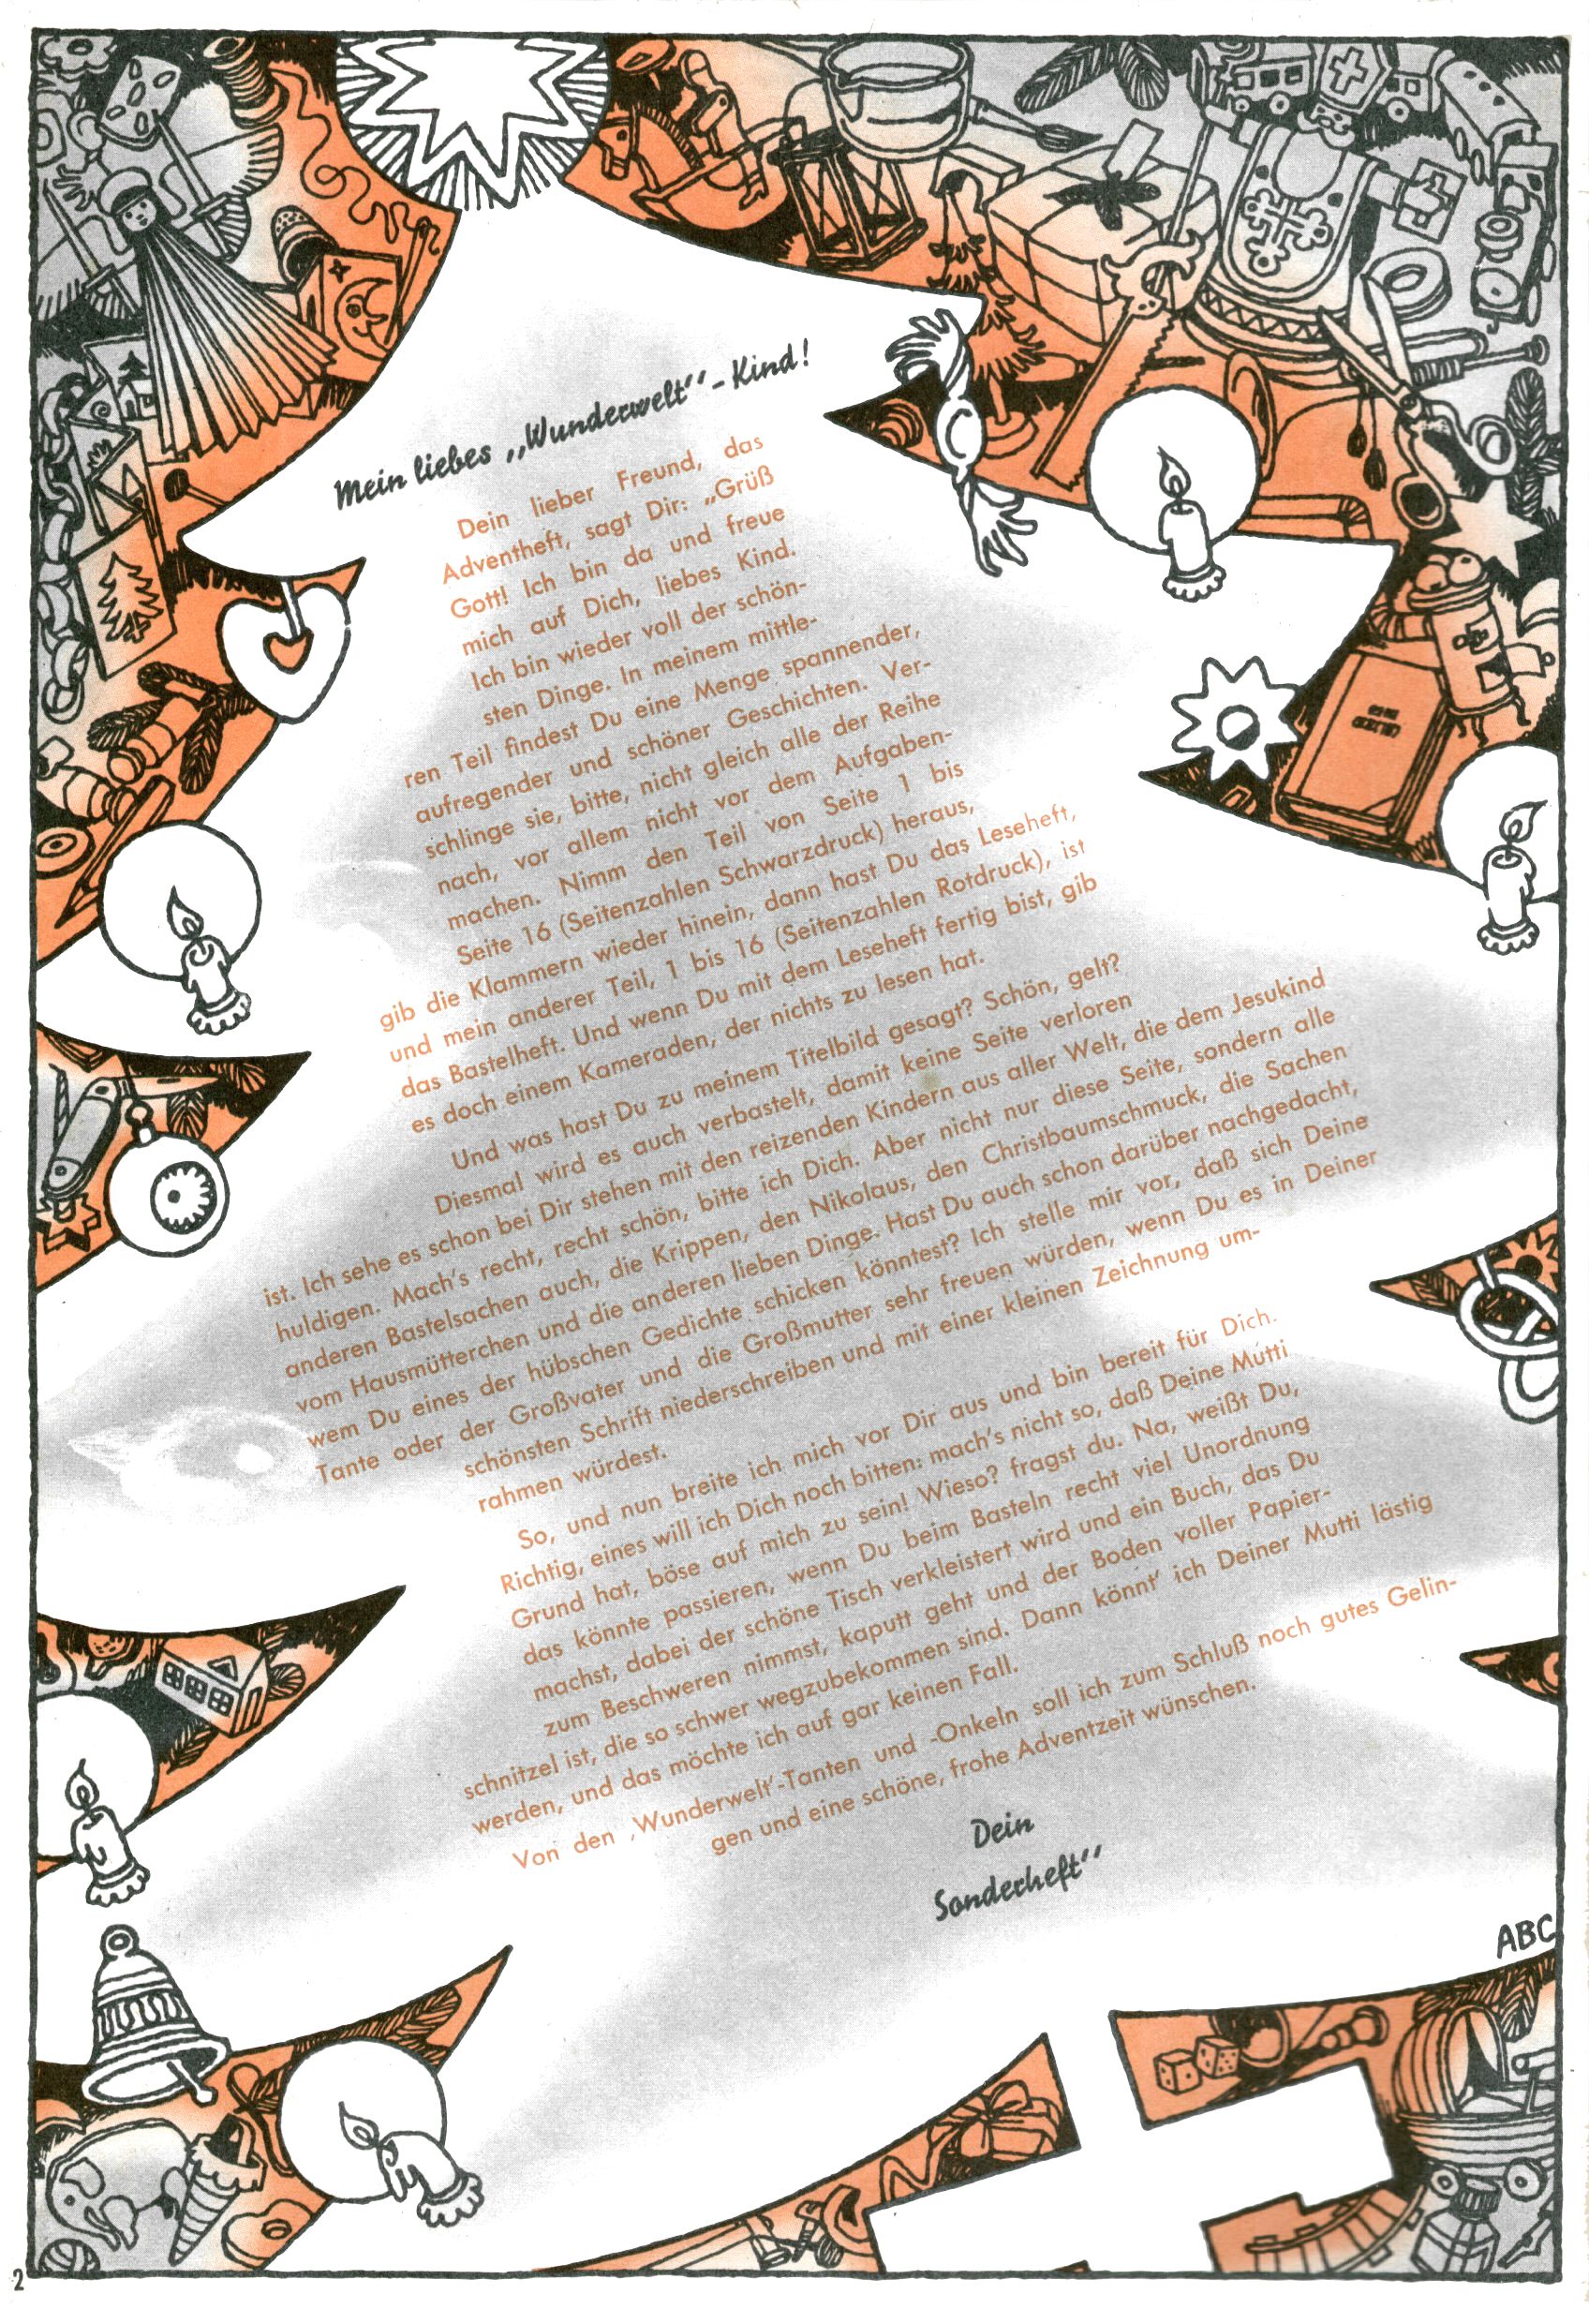 Mein liebes „Wunderwelt“-Kind!
Dein lieber Freund, das
Adventheft, sagt Dir: „Grüß
Gott! Ich bin da und freue
mich auf Dich, liebes Kind.
Ich bin wieder voll der schön-
sten Dinge. In meinem mittle-
ren Teil findest Du eine Menge spannender,
aufregender und schöner Geschichten. Ver-
schlinge sie, bitte, nicht gleich alle der Reihe
nach, vor allem nicht vor dem Aufgaben-
machen. Nimm den Teil von Seite 1 bis
Seite 16 (Seitenzahlen Schwarzdruck) heraus,
gib die Klammern wieder hinein, dann hast Du das Leseheft,
und mein anderer Teil, 1 bis 16 (Seitenzahlen Rotdruck), ist
das Bastelheft. Und wenn Du mit dem Leseheft fertig bist, gib
es doch einem Kameraden, der nichts zu lesen hat.
Und was hast Du zu meinem Titelbild gesagt? Schön, gelt?
Diesmal wird es auch verbastelt, damit keine Seite verloren
ist. Ich sehe es schon bei Dir stehen mit den reizenden Kindern aus aller Welt, die dem Jesukind
huldigen. Mach's recht, recht schön, bitte ich Dich. Aber nicht nur diese Seite, sondern alle
anderen Bastelsachen auch, die Krippen, den Nikolaus, den Christbaumschmuck, die Sachen
vom Hausmütterchen und die anderen lieben Dinge. Hast Du auch schon darüber nachgedacht,
wem Du eines der hübschen Gedichte schicken könntest? Ich stelle mir vor, daß sich Deine
Tante oder der Großvater und die Großmutter sehr freuen würden, wenn Du es in Deiner
schönsten Schrift niederschreiben und mit einer kleinen Zeichnung um-
rahmen würdest.
So, und nun breite ich mich vor Dir aus und bin bereit für Dich.
Richtig, eines will ich Dich noch bitten: mach's nicht so, daß Deine Mutti
Grund hat, böse auf mich zu sein! Wieso? fragst du. Na, weißt Du,
das könnte passieren, wenn Du beim Basteln recht viel Unordnung
machst, dabei der schöne Tisch verkleistert wird und ein Buch, das Du
zum Beschweren nimmst, kaputt geht und der Boden voller Papier-
schnitzel ist, die so schwer wegzubekommen sind. Dann könnt' ich Deiner Mutti lästig
werden, und das möchte ich auf gar keinen Fall.
Von den ‚Wunderwelt‘-Tanten und -Onkeln soll ich zum Schluß noch gutes Gelin-
gen und eine schöne, frohe Adventzeit wünschen.
Dein
Sonderheft“
ABC
2